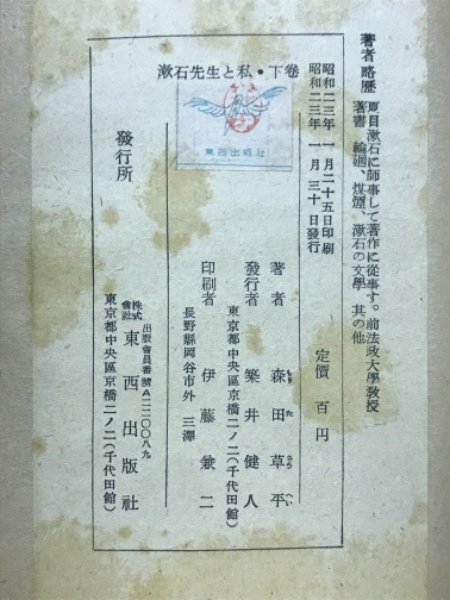 著者略歴 夏目漱石に師事して著作に從事す。前法政大學敎授
著書 輪廻、煤煙、漱石の文學 其の他
昭和二三年一月二十五日印刷
昭和二三年一月三十日發行
漱石先生と私・下巻
東西出版社
定價 百円
著者 森田草平
もりたさうへい
發行者 築井健人
東京都中央區京橋二ノ二(千代田館)
印刷者 伊藤兼二
長野縣岡谷市外 三澤
發行所
出版會員番號A二二〇〇八九
株式會社 東西出版社
東京都中央區京橋二ノ二(千代田館)